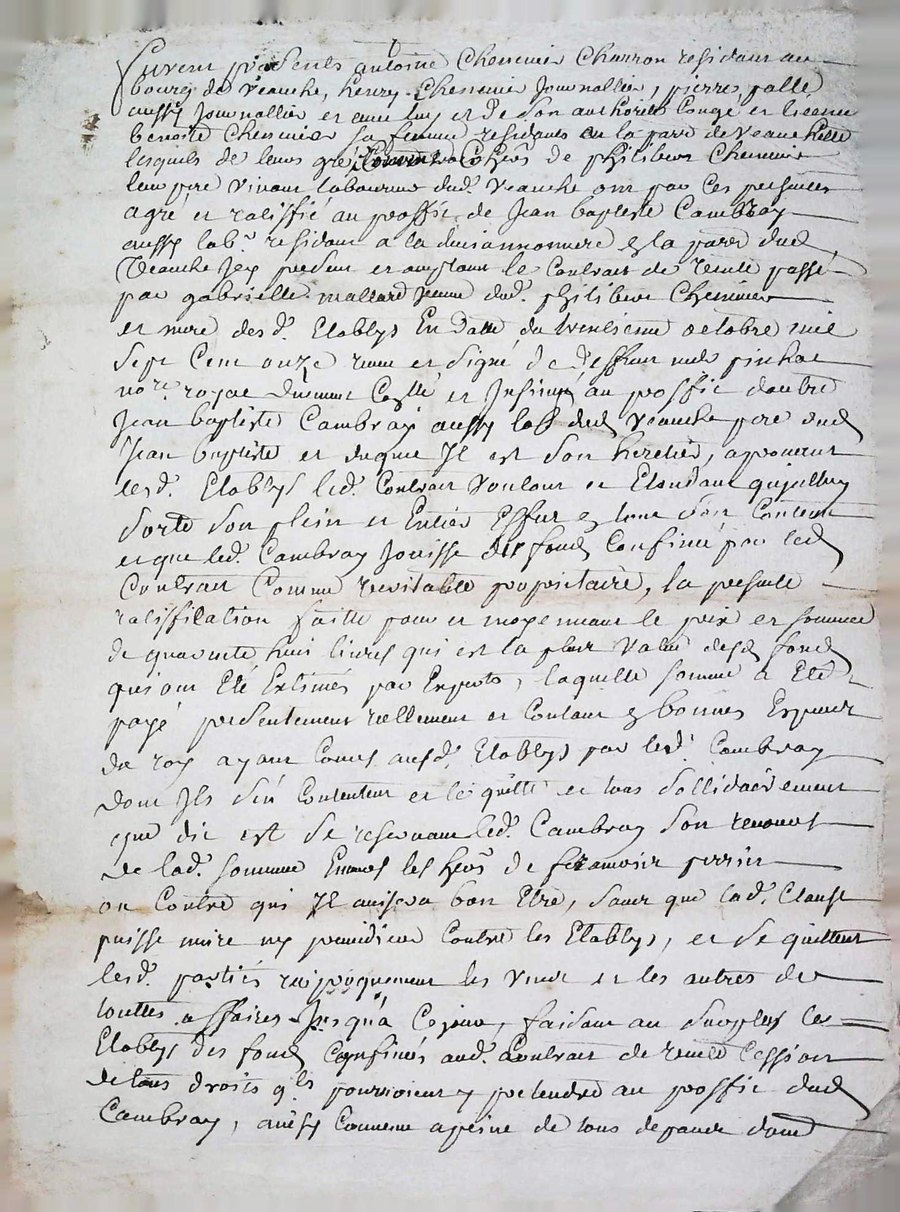 Furent présents antoine Cheminie Charron residant au
bourg de Veauche, henry Cheminie Journallier, pierre palle
aussy Journallier et avec luy et de son authorité Congé et licence
benoite Cheminier sa femme residants en la parr. de Veauchette
lesquels de leurs gré, Comme Cohers de philibert Cheminie
leur pere vivant laboureur dud. Veauche ont par ces presentes
agré et ratiffié au proffit de Jean baptiste Cambray
aussy lab. residant a la en la parr dud
Veauche Jcy present et acceptant le Contrait de vente passé
par gabrielle mallard femme dud. philibert Cheminier
et mere desd. Etablys En datte du trentieme octobre mil
sept Cent onze receu et signé de deffunt me pinhac
nore. royal duement Collé et Insinué au proffit dautre
Jean baptiste Cambray aussy lab dud Veauche pere dud
Jean baptiste et duquel Jl est son heretier, aprouvent
lesd. Etablys led. Contrait voulant et Etandant quyelluy
sorte son plein et Entier Effet en tout son Contenu
et que led. Cambray Jouisse des fond Confiné par led
Contrait Comme veritable propriettaire, la presente
ratiffication faitte pour et moyennant le prix et somme
de quarante huit livres qui est la plus value desd fond
qui ont Eté Estimés par Experts, laquelle somme a Eté
payé presentement reellement et Contant en bonnes Especes
du roy ayant Cours ausd. Etablys par led. Cambray
dont Jls s'en Contentent et le quitte et tous sollidairement
que dit est se reservant led. Cambray son recours
de lad. somme Envers les hers de perrin
ou Contre qui Jl avisera bon Etre, sans que lad. Clause
puisse nuire ny prejudicier Contre les Etablys, et se quittent
lesd. partiés reciproquement les unes et les autres de
touttes affaires Jusqu'a Cejour, faisant au surplus les
Etablys des fond Confinés aud. Contrait de vente Cession
de tous droits qls pourroient y pretendre au proffit dud
Cambray, ainsy Convenu a peine de tous depans dom